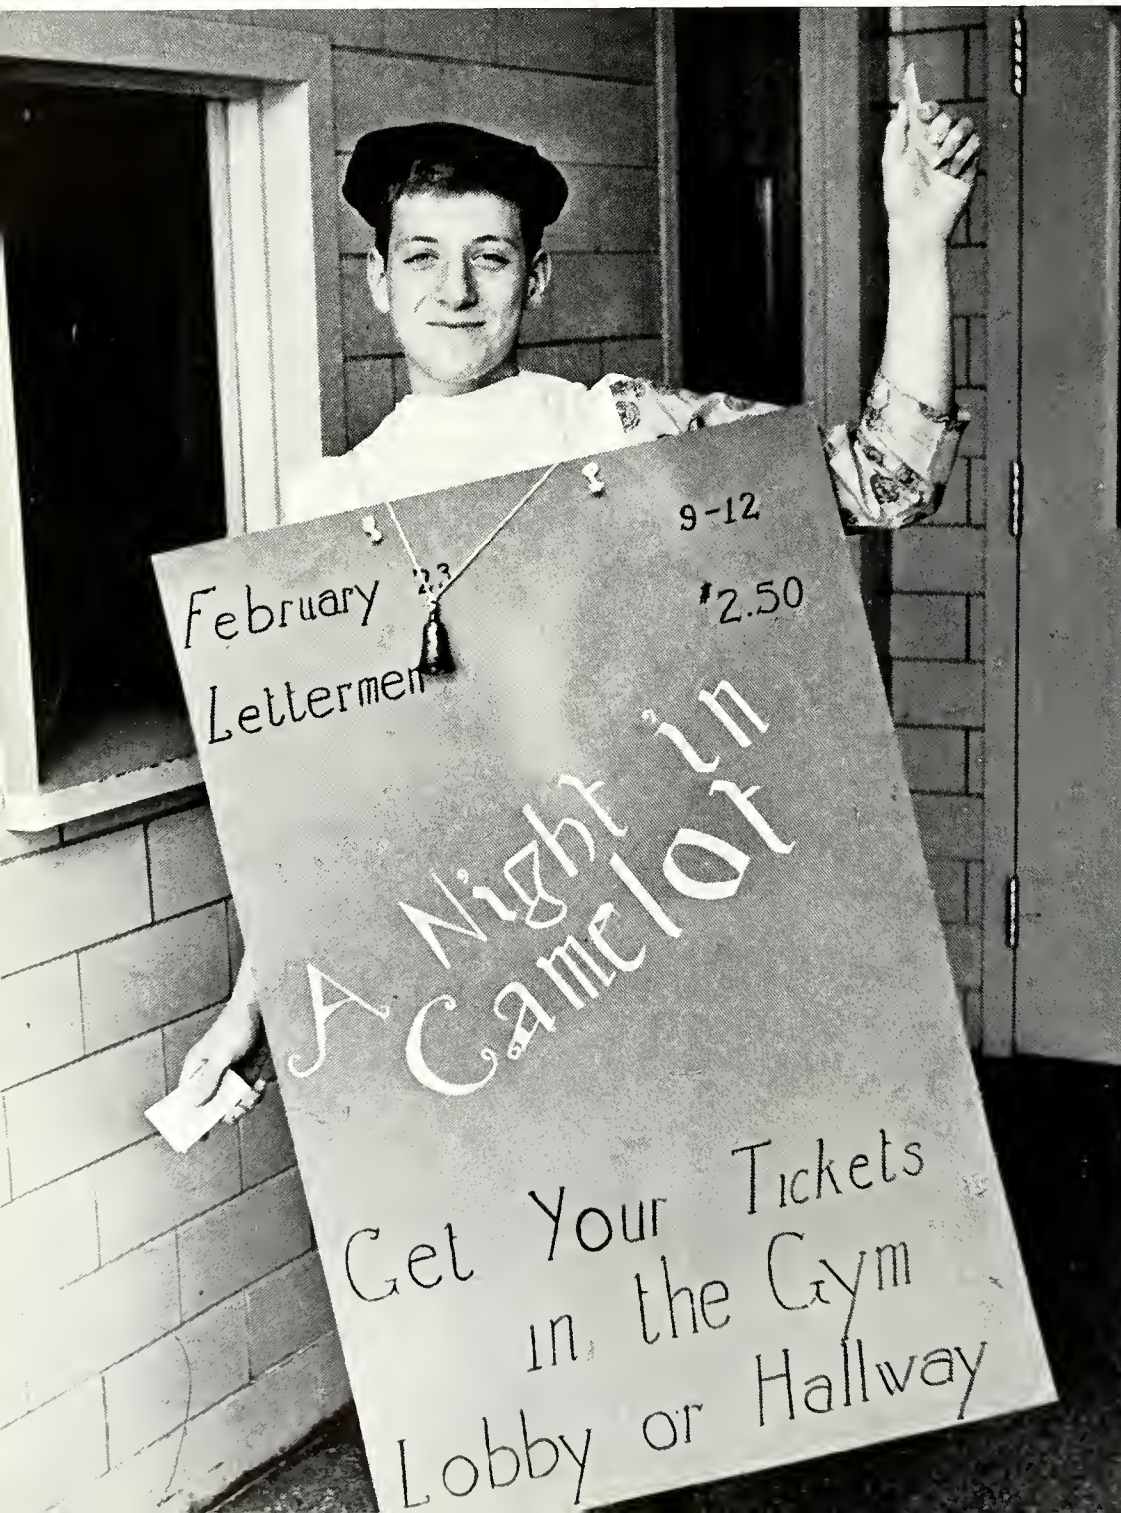 February 23
9-12
$2.50
Lettermen
A Night in
Camelot
Get Your Tickets
in the Gym
Lobby or Hallway